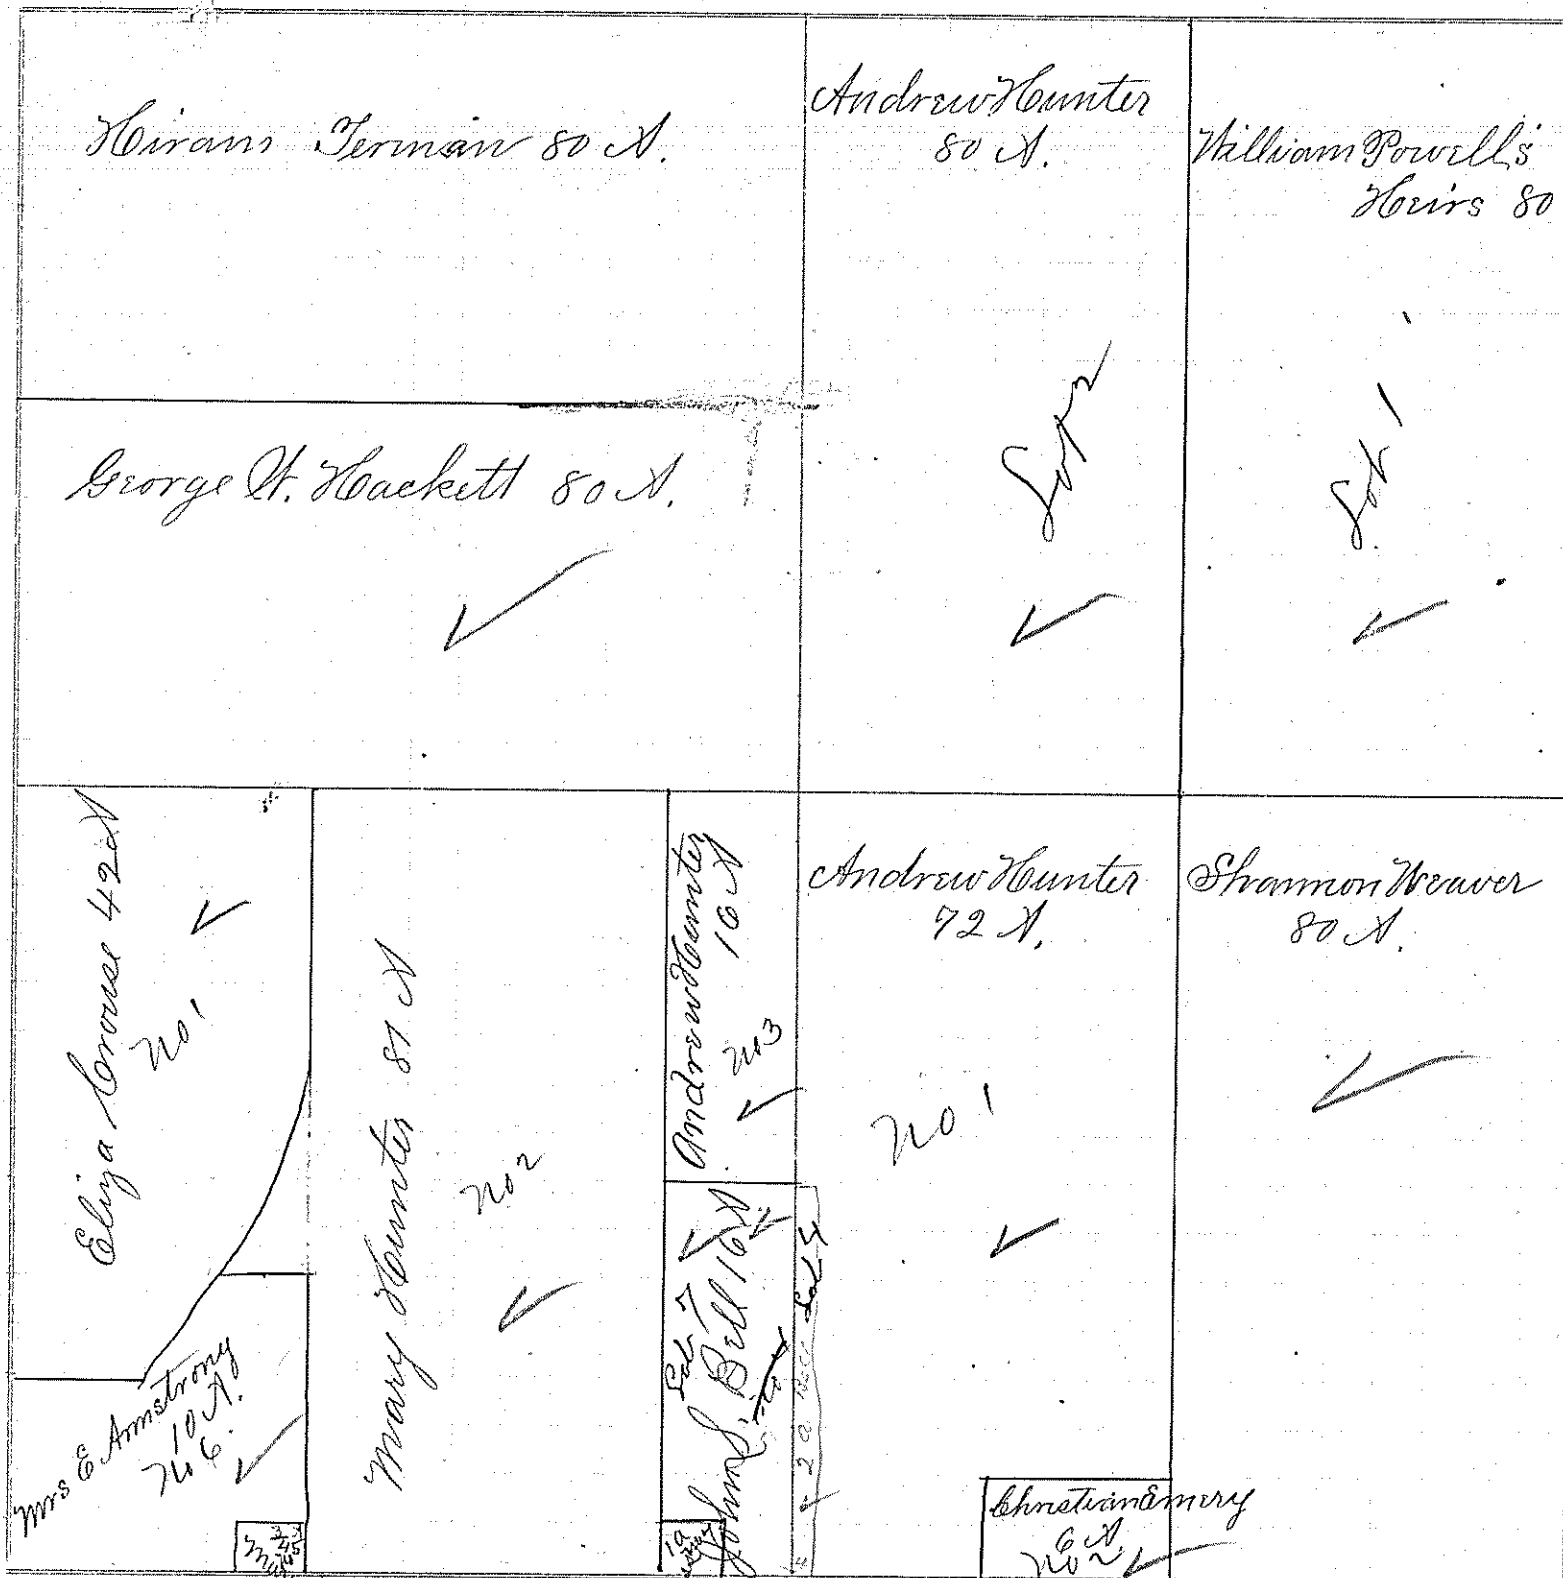 Hiram Terman 80 A.
Andrew Hunter
80 A.
William Powell's
Heirs 80
George W. Hackett 80 A.
Lot 2
Lot 1
Eliza Crouse 42 A
No 1
Mary Hunter 81 A
No 2
Andrew Hunter
16 A
No 3
Andrew Hunter
72 A.
No 1
Shannon Weaver
80 A.
Mrs E Armstrong
10 A.
No 6.
Lot 7
John S. Bell 16 A
Lot 4
2 a
Christian Emery
6 A
No 2
1 a